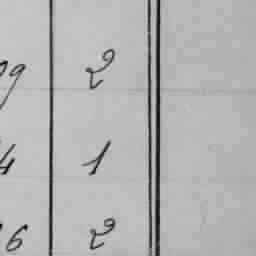 9 2
4 1
6 2